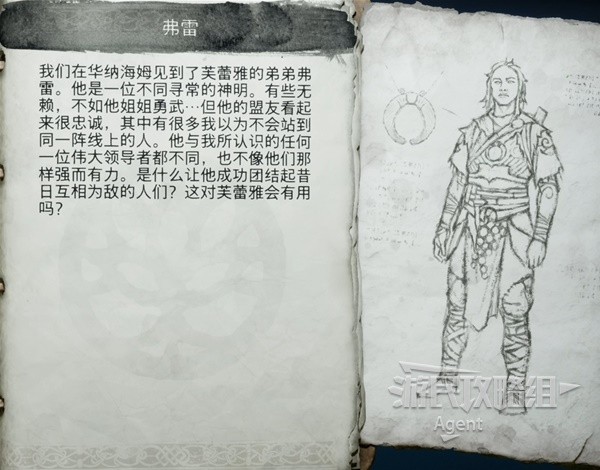 弗雷
我们在华纳海姆见到了芙蕾雅的弟弟弗
雷。他是一位不同寻常的神明。有些无
赖，不如他姐姐勇武…但他的盟友看起
来很忠诚，其中有很多我以为不会站到
同一阵线上的人。他与我所认识的任何
一位伟大领导者都不同，也不像他们那
样强而有力。是什么让他成功团结起昔
日互相为敌的人们？这对芙蕾雅会有用
吗？
游民攻略组
Agent